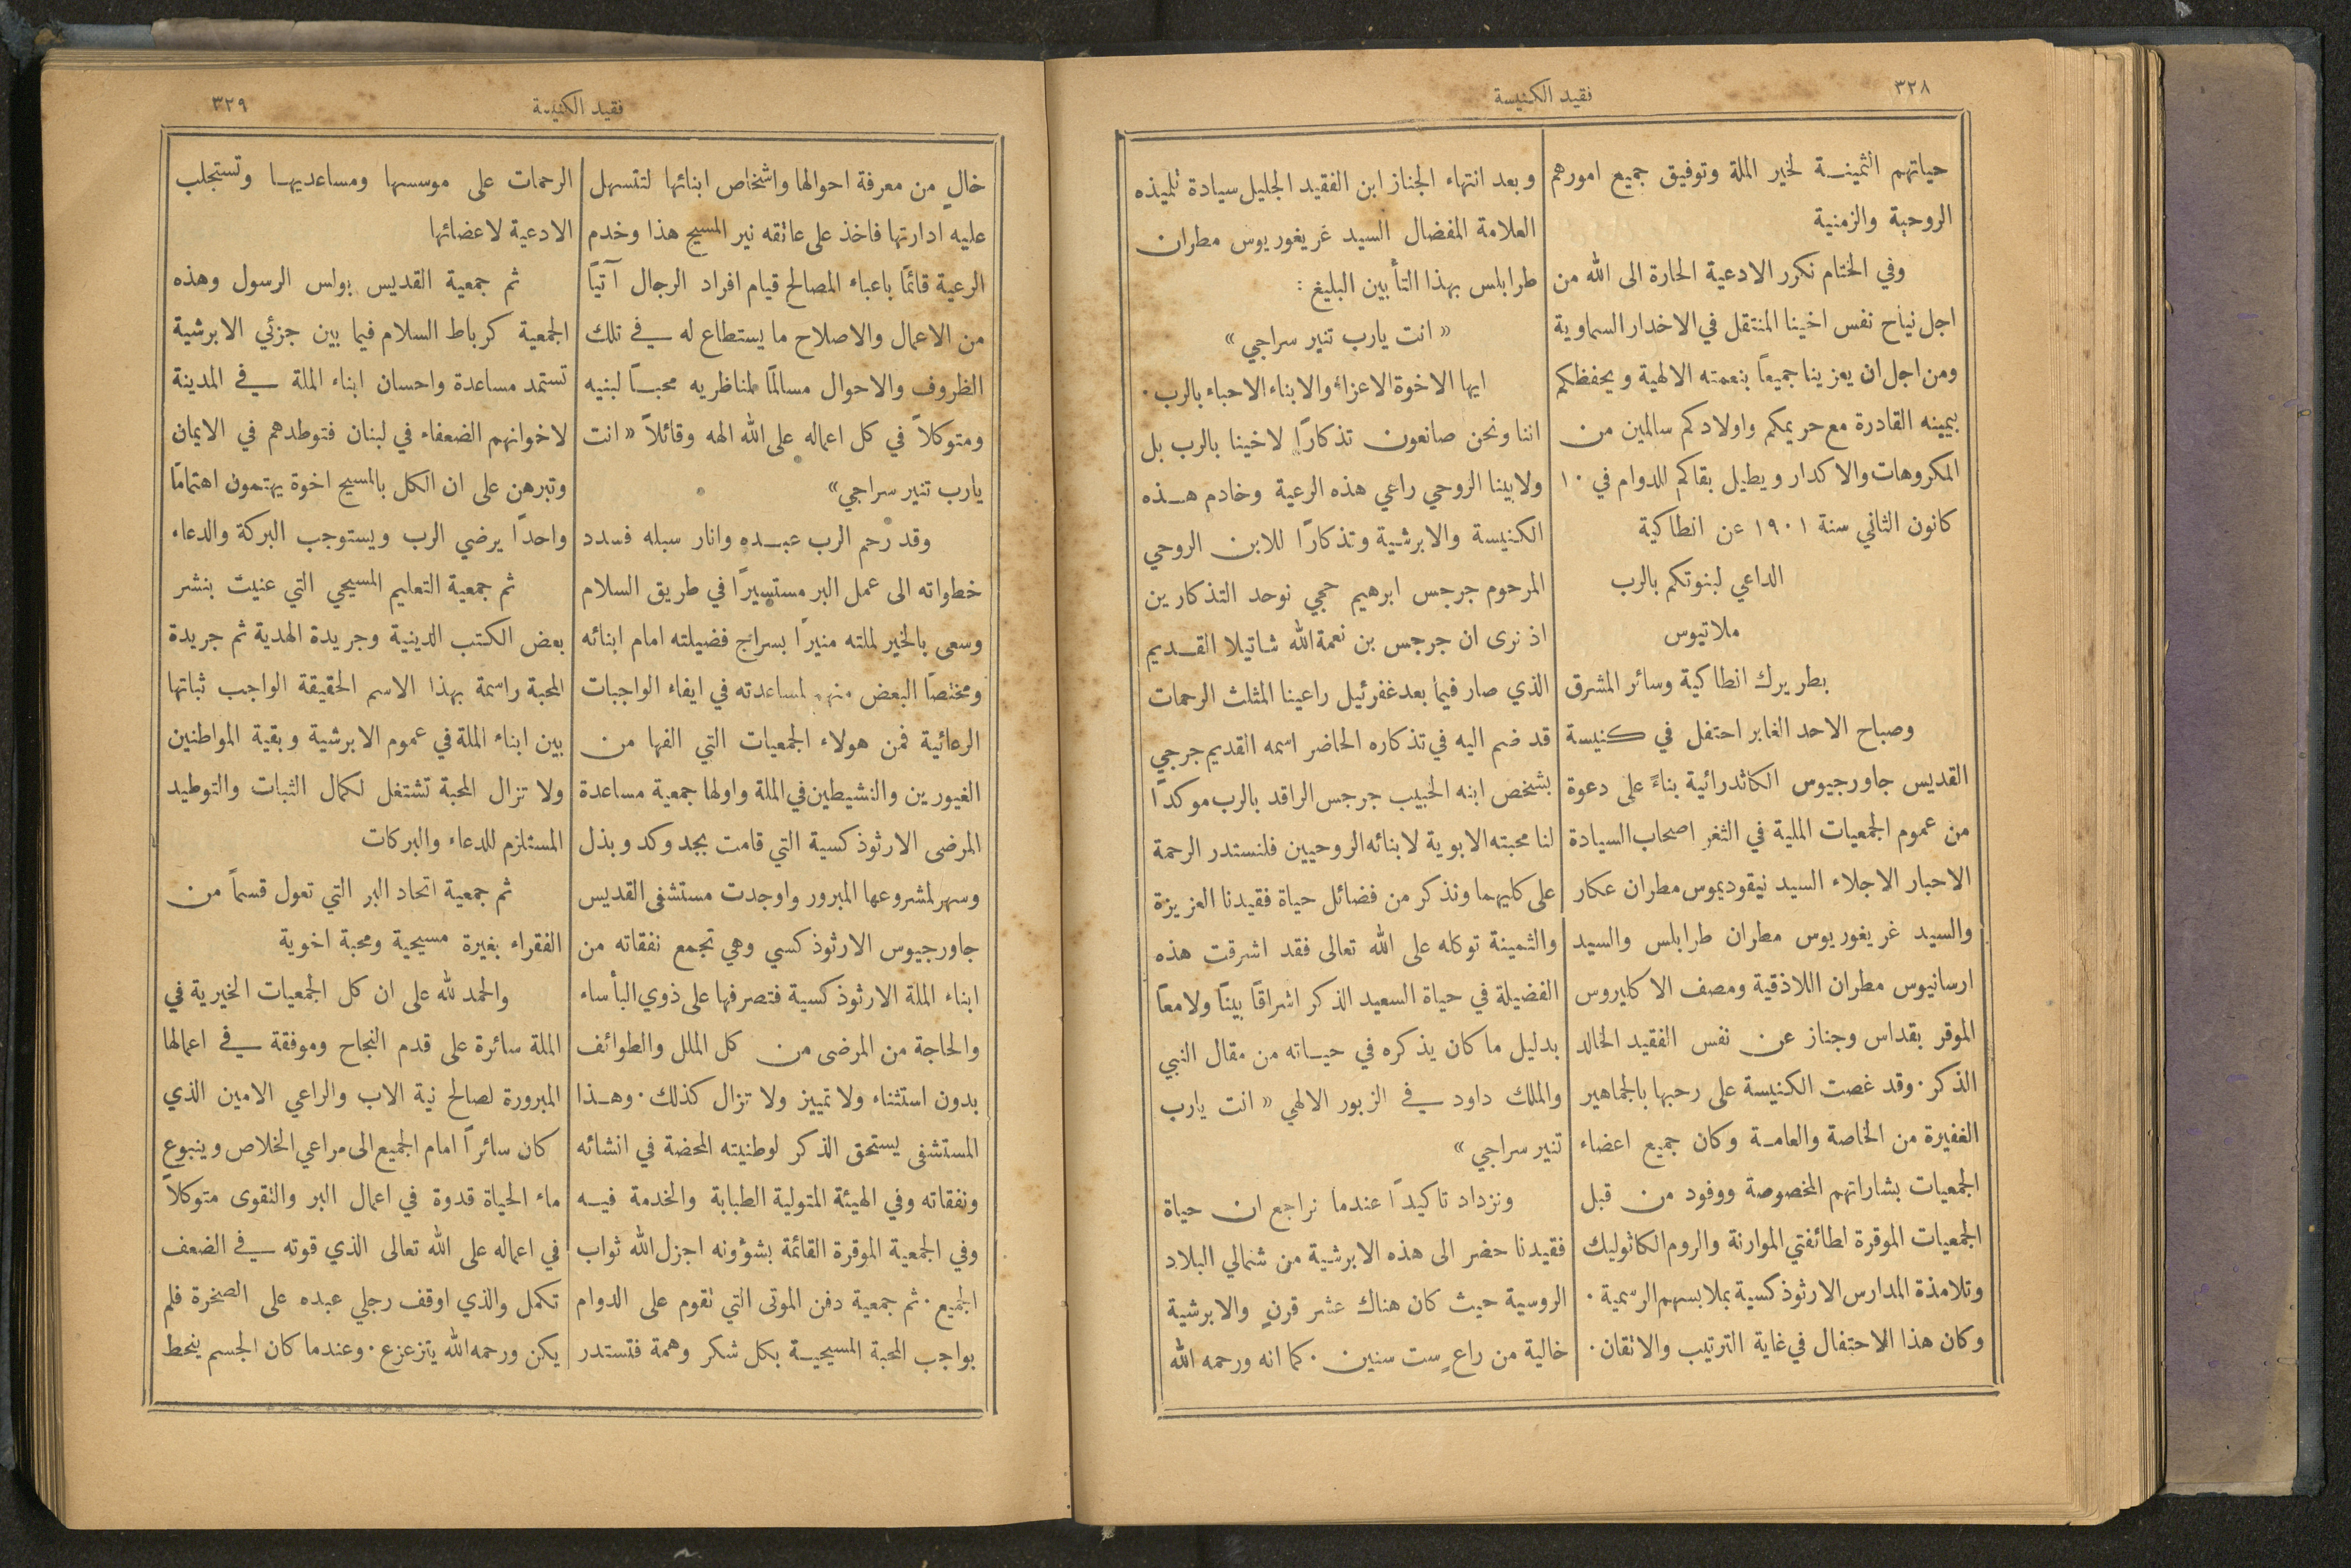 ٣٢٨
فقيد الكنيسة
حياتهم الثمينة لخير الملة وتوفيق جميع امورهم
الروحية والزمنية
وفي الختام نكرر الادعية الحارة الى الله من
اجل نياح نفس اخينا المنتقل في الاخدار السماوية
ومن اجل ان يعزينا جميعاً بنعمته الالهية ويحفظكم
بيمينه القادرة مع حريمكم واولادكم سالمين من
المكروهات والاكدار ويطيل بقاكم للدوام في ١٠
كانون الثاني سنة ١٩٠١ عن انطاكية
الداعي لبنوتكم بالرب
ملاتيوس
بطريرك انطاكية وسائر المشرق
وصباح الاحد الغابر احتفل في كنيسة
القديس جاورجيوس الكاثدرائية بناءً على دعوة
من عموم الجمعيات الملية في الثغر اصحاب السيادة
الاحبار الاجلاء السيد نيقوديموس مطران عكار
والسيد غريغوريوس مطران طرابلس والسيد
ارسانيوس مطران اللاذقية ومصف الاكليروس
الموقر بقداس وجناز عن نفس الفقيد الخالد
الذكر ٠ وقد غصت الكنيسة على رحبها بالجماهير
الغفيرة من الخاصة والعامة وكان جميع اعضاء
الجمعيات بشاراتهم المخصوصة ووفود من قبل
الجمعيات الموقرة لطائفتي الموارنة والروم الكاثوليك
وتلامذة المدارس الارثوذكسية بملابسهم الرسمية ٠
وكان هذا الاحتفال في غاية الترتيب والاتقان ٠
وبعد انتهاء الجناز ابن الفقيد الجليل سيادة تلميذه
العلامة المفضال السيد غريغوريوس مطران
طرابلس بهذا التأبين البليغ :
« انت يارب تنير سراجي »
ايها الاخوة الاعزاء والابناء الاحباء بالرب ٠
اننا ونحن صانعون تذكارًا لاخينا بالرب بل
ولابينا الروحي راعي هذه الرعية وخادم هذه
الكنيسة والابرشية وتذكارًا للابن الروحي
المرحوم جرجس ابرهيم حجي نوحد التذكارين
اذ نرى ان جرجس بن نعمة الله شاتيلا القديم
الذي صار فيما بعد غفرئيل راعينا المثلث الرحمات
قد ضم اليه في تذكاره الحاضر اسمه القديم جرجي
بشخص ابنه الحبيب جرجس الراقد بالرب موكدًا
لنا محبته الابوية لابنائه الروحيين فلنستدر الرحمة
على كليهما ونذكر من فضائل حياة فقيدنا العزيزة
والثمينة توكله على الله تعالى فقد اشرقت هذه
الفضيلة في حياة السعيد الذكر اشراقًا بينًا ولامعًا
بدليل ما كان يذكره في حياته من مقال النبي
والملك داود في الزبور الالهي « انت يارب
تنير سراجي »
ونزداد تاكيدًا عندما نراجع ان حياة
فقيدنا حضر الى هذه الابرشية من شمالي البلاد
الروسية حيث كان هناك عشر قرنٍ والابرشية
خالية من راعٍ ست سنين ٠ كما انه ورحمه الله
فقيد الكنيسة
٣٢٩
خالٍ من معرفة احوالها واشخاص ابنائها لتتسهل
عليه ادارتها فاخذ على عاتقه نير المسيح هذا وخدم
الرعية قائمًا باعباء المصالح قيام افراد الرجال آتيًا
من الاعمال والاصلاح ما يستطاع له في تلك
الظروف والاحوال مسالمًا لمناظريه محبًا لبنيه
ومتوكلاً في كل اعماله على الله الهه وقائلاً « انت
يارب تنير سراجي »
وقد رحم الرب عبده وانار سبله فسدد
خطواته الى عمل البر مستسيرًا في طريق السلام
وسعى بالخير لملته منيرًا بسراج فضيلته امام ابنائه
ومختصًا البعض منهم لمساعدته في ايفاء الواجبات
الرعائية فمن هولاء الجمعيات التي الفها من
الغيورين والنشيطين في الملة واولها جمعية مساعدة
المرضى الارثوذكسية التي قامت بجد وكد وبذل
وسهر لمشروعها المبرور واوجدت مستشفى القديس
جاورجيوس الارثوذكسي وهي تجمع نفقاته من
ابناء الملة الارثوذكسية فتصرفها على ذوي البأساء
والحاجة من المرضى من كل الملل والطوائف
بدون استثناء ولا تمييز ولا تزال كذلك ٠ وهذا
المستشفى يستحق الذكر لوطنيته المحضة في انشائه
ونفقاته وفي الهيئة المتولية الطبابة والخدمة فيه
وفي الجمعية الموقرة القائمة بشؤونه اجزل الله ثواب
الجميع ٠ ثم جمعية دفن الموتى التي تقوم على الدوام
بواجب المحبة المسيحية بكل شكر وهمة فتستدر
الرحمات على موسسها ومساعديها وتستجلب
الادعية لاعضائها
ثم جمعية القديس بولس الرسول وهذه
الجمعية كرباط السلام فيما بين جزئي الابرشية
تستمد مساعدة واحسان ابناء الملة في المدينة
لاخوانهم الضعفاء في لبنان فتوطدهم في الايمان
وتبرهن على ان الكل بالمسيح اخوة يهتمون اهتمامًا
واحدًا يرضي الرب ويستوجب البركة والدعاء
ثم جمعية التعليم المسيحي التي عنيت بنشر
بعض الكتب الدينية وجريدة الهدية ثم جريدة
المحبة راسمة بهذا الاسم الحقيقة الواجب ثباتها
بين ابناء الملة في عموم الابرشية وبقية المواطنين
ولا تزال المحبة تشتغل لكمال الثبات والتوطيد
المستلزم للدعاء والبركات
ثم جمعية اتحاد البر التي تعول قسماً من
الفقراء بغيرة مسيحية ومحبة اخوية
والحمد لله على ان كل الجمعيات الخيرية في
الملة سائرة على قدم النجاح وموفقة في اعمالها
المبرورة لصالح نية الاب والراعي الامين الذي
كان سائرًا امام الجميع الى مراعي الخلاص وينبوع
ماء الحياة قدوة في اعمال البر والتقوى متوكلاً
في اعماله على الله تعالى الذي قوته في الضعف
تكمل والذي اوقف رجلي عبده على الصخرة فلم
يكن ورحمه الله يتزعزع ٠ وعندما كان الجسم ينحط